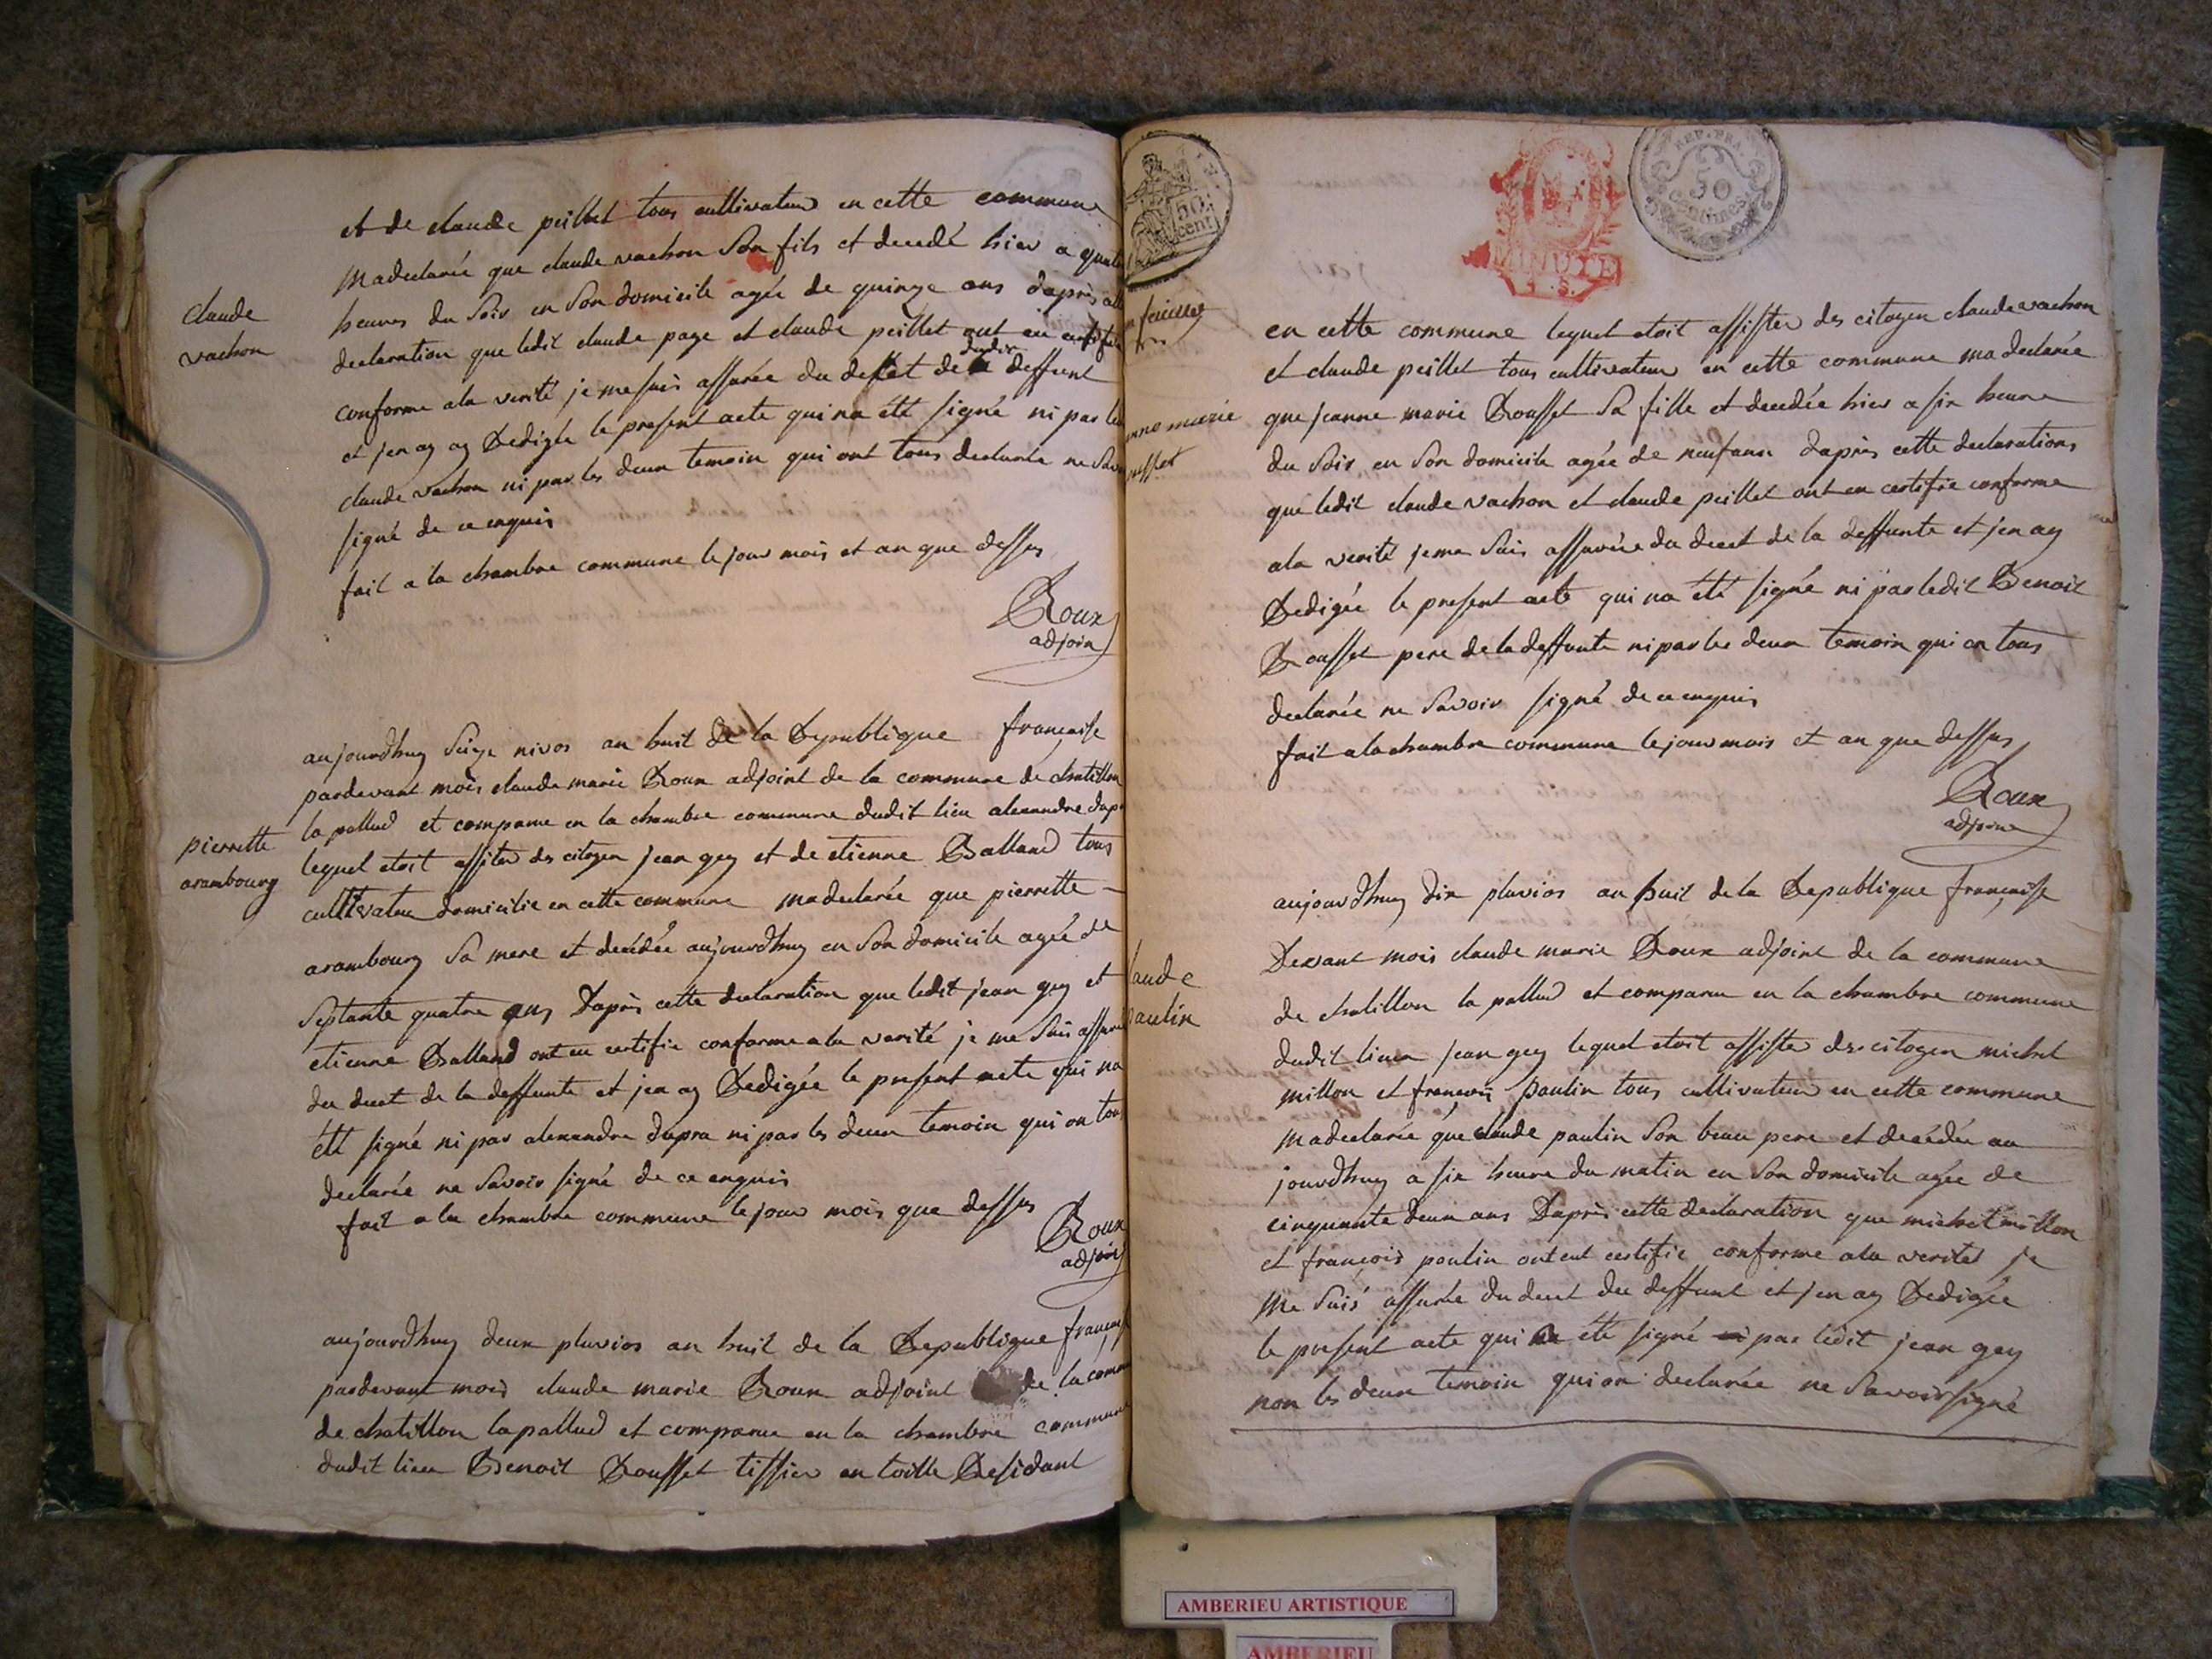 et de claude peillet tous cultivateur en cette commune
Madeclarée que claude vachon Son fils et decedé hier a quatre
claude
vachon
heures du Soir en Son domicile agée de quinze ans daprès
declaration que ledit claude page et claude peillet ont eu certifie
dudit
conforme ala verité je me suis assurée du deset de deffunt
et jen ay ay Redigée le present acte qui na été signé ni par le
claude vachon ni par les deux temoin qui ont tous declarée ne
signé de ce enquis
fait a la chambre commune le jour mois et an que dessus
Roux
adjoin
aujourdhuy Seize nivos an huit de la Republique française
pardevant mois claude marie Roux adjoint de la commune de chatillon
pierrette
arambourg
la pallud et comparue en la chambre commune dudit lieu alexandre dupra
lequel etoit assister des citoyen jean gey et de etienne Balland tous
cultivateur domicilie en cette commune madeclarée que pierrette
arambourg Sa mere et decédée aujourdhuy en Son domicile agée de
Septante quatre ans Daprès cette declaration que ledit jean gey et
etienne Balland ont eu certifie conforme ala verité je me Suis assuré
du decet de la deffunte et jen ay Redigée le present acte qui na
été signé ni par alexandre dupra ni par les deux temoin qui on tous
declarée ne Savoir signé de ce enquis
fait a la chambre commune le jour mois que dessus
Roux
adjoin
aujourdhuy deux pluvios an huit de la Republique
pardevant mois claude marie Roux adjoint de la
de chatillon lapallud et comparue en la chambre commune
dudit lieu Benoit Rousset tissier en toille Residant
50
cent
REP. FRA.
50
centimes
MINUTE
en cette commune lequel etoit assister des citoyen claude vachon
et claude peillet tous cultivateur en cette commune madeclarée
que jeanne marie Rousset Sa fille et decedée hier a six heure
du Soir en Son domicile agée de neuf ans daprès cette declarations
que ledit claude vachon et claude peillet ont eu certifie conforme
ala verité je me Suis assurée du decet de la deffunte et jen ay
Redigée le present acte qui na été signé ni par ledit Benoit
Rousset pere de la deffunte ni par les deux temoin qui on tous
declarée ne Savoir signé de ce enquis
fait ala chambre commune le jour mois et an que dessus
Roux
adjoin
aujourdhuy dix pluvios an huit de la Republique française
Devant mois claude marie Roux adjoint de la commune
laude
paulin
de chatillon la pallud et comparu en la chambre commune
dudit lieu jean gey lequel etoit assister des citoyen michel
millon et françois paulin tous cultivateur en cette commune
madeclarée que claude paulin Son beau pere et decédée au
jourdhuy a six heure du matin en Son domicile agée de
cinquante deux ans Daprès cette declaration que michel millon
et françois paulin ont eut certifie conforme ala verité je
me Suis assurée du decet du deffunt et jen ay Redigée
le present acte qui a été signé par ledit jean gey
non les deux temoin qui on declarée ne Savoir signé
AMBERIEU ARTISTIQUE
AMBERIEU